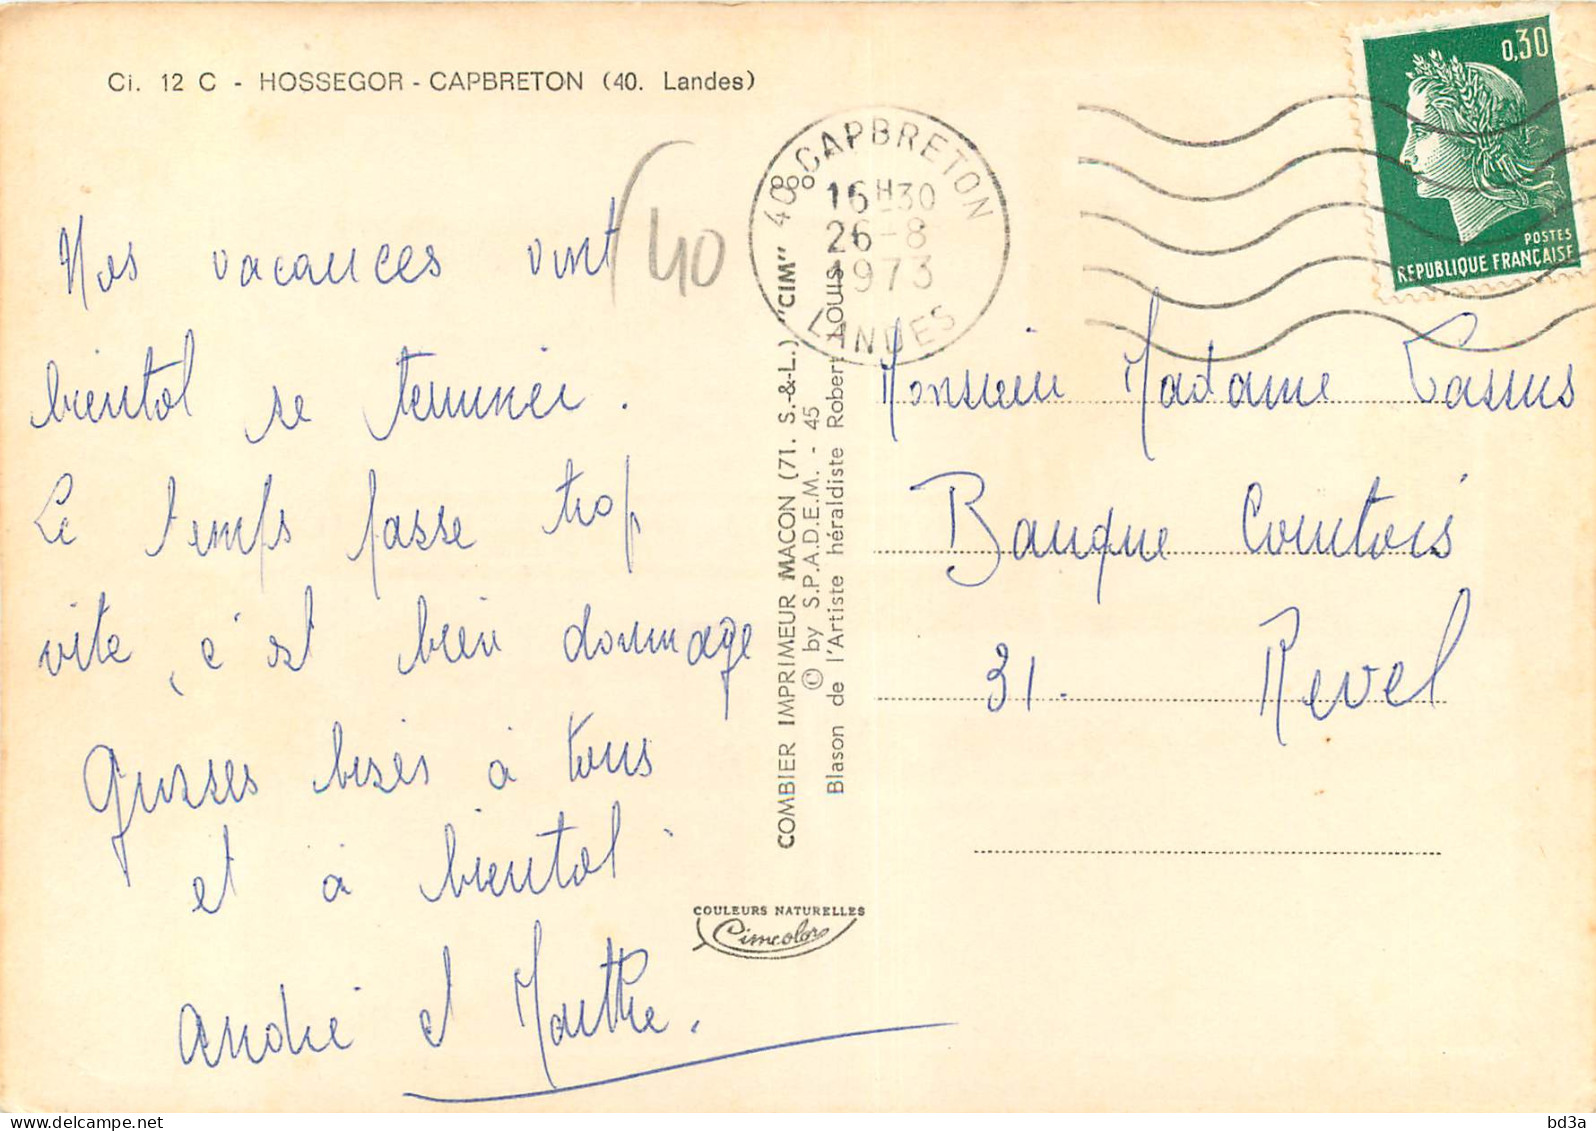 Ci. 12 C - HOSSEGOR - CAPBRETON (40. Landes)
Nos vacances vont
bientot se terminer.
Le temps passe trop
vite, c'est bien dommage
Grosses bises à tous
et à bientot.
André et Marthe.
40
40 CAPBRETON
16H30
26-8
1973
LANDES
0,30
POSTES
REPUBLIQUE FRANÇAISE
COMBIER IMPRIMEUR MACON (71. S.-&-L.) "CIM"
© by S.P.A.D.E.M. - 45
Blason de l'Artiste héraldiste Robert Louis
COULEURS NATURELLES
Cimcolor
Monsieur Madame Lassus
Banque Courtois
31. Revel
bd3a